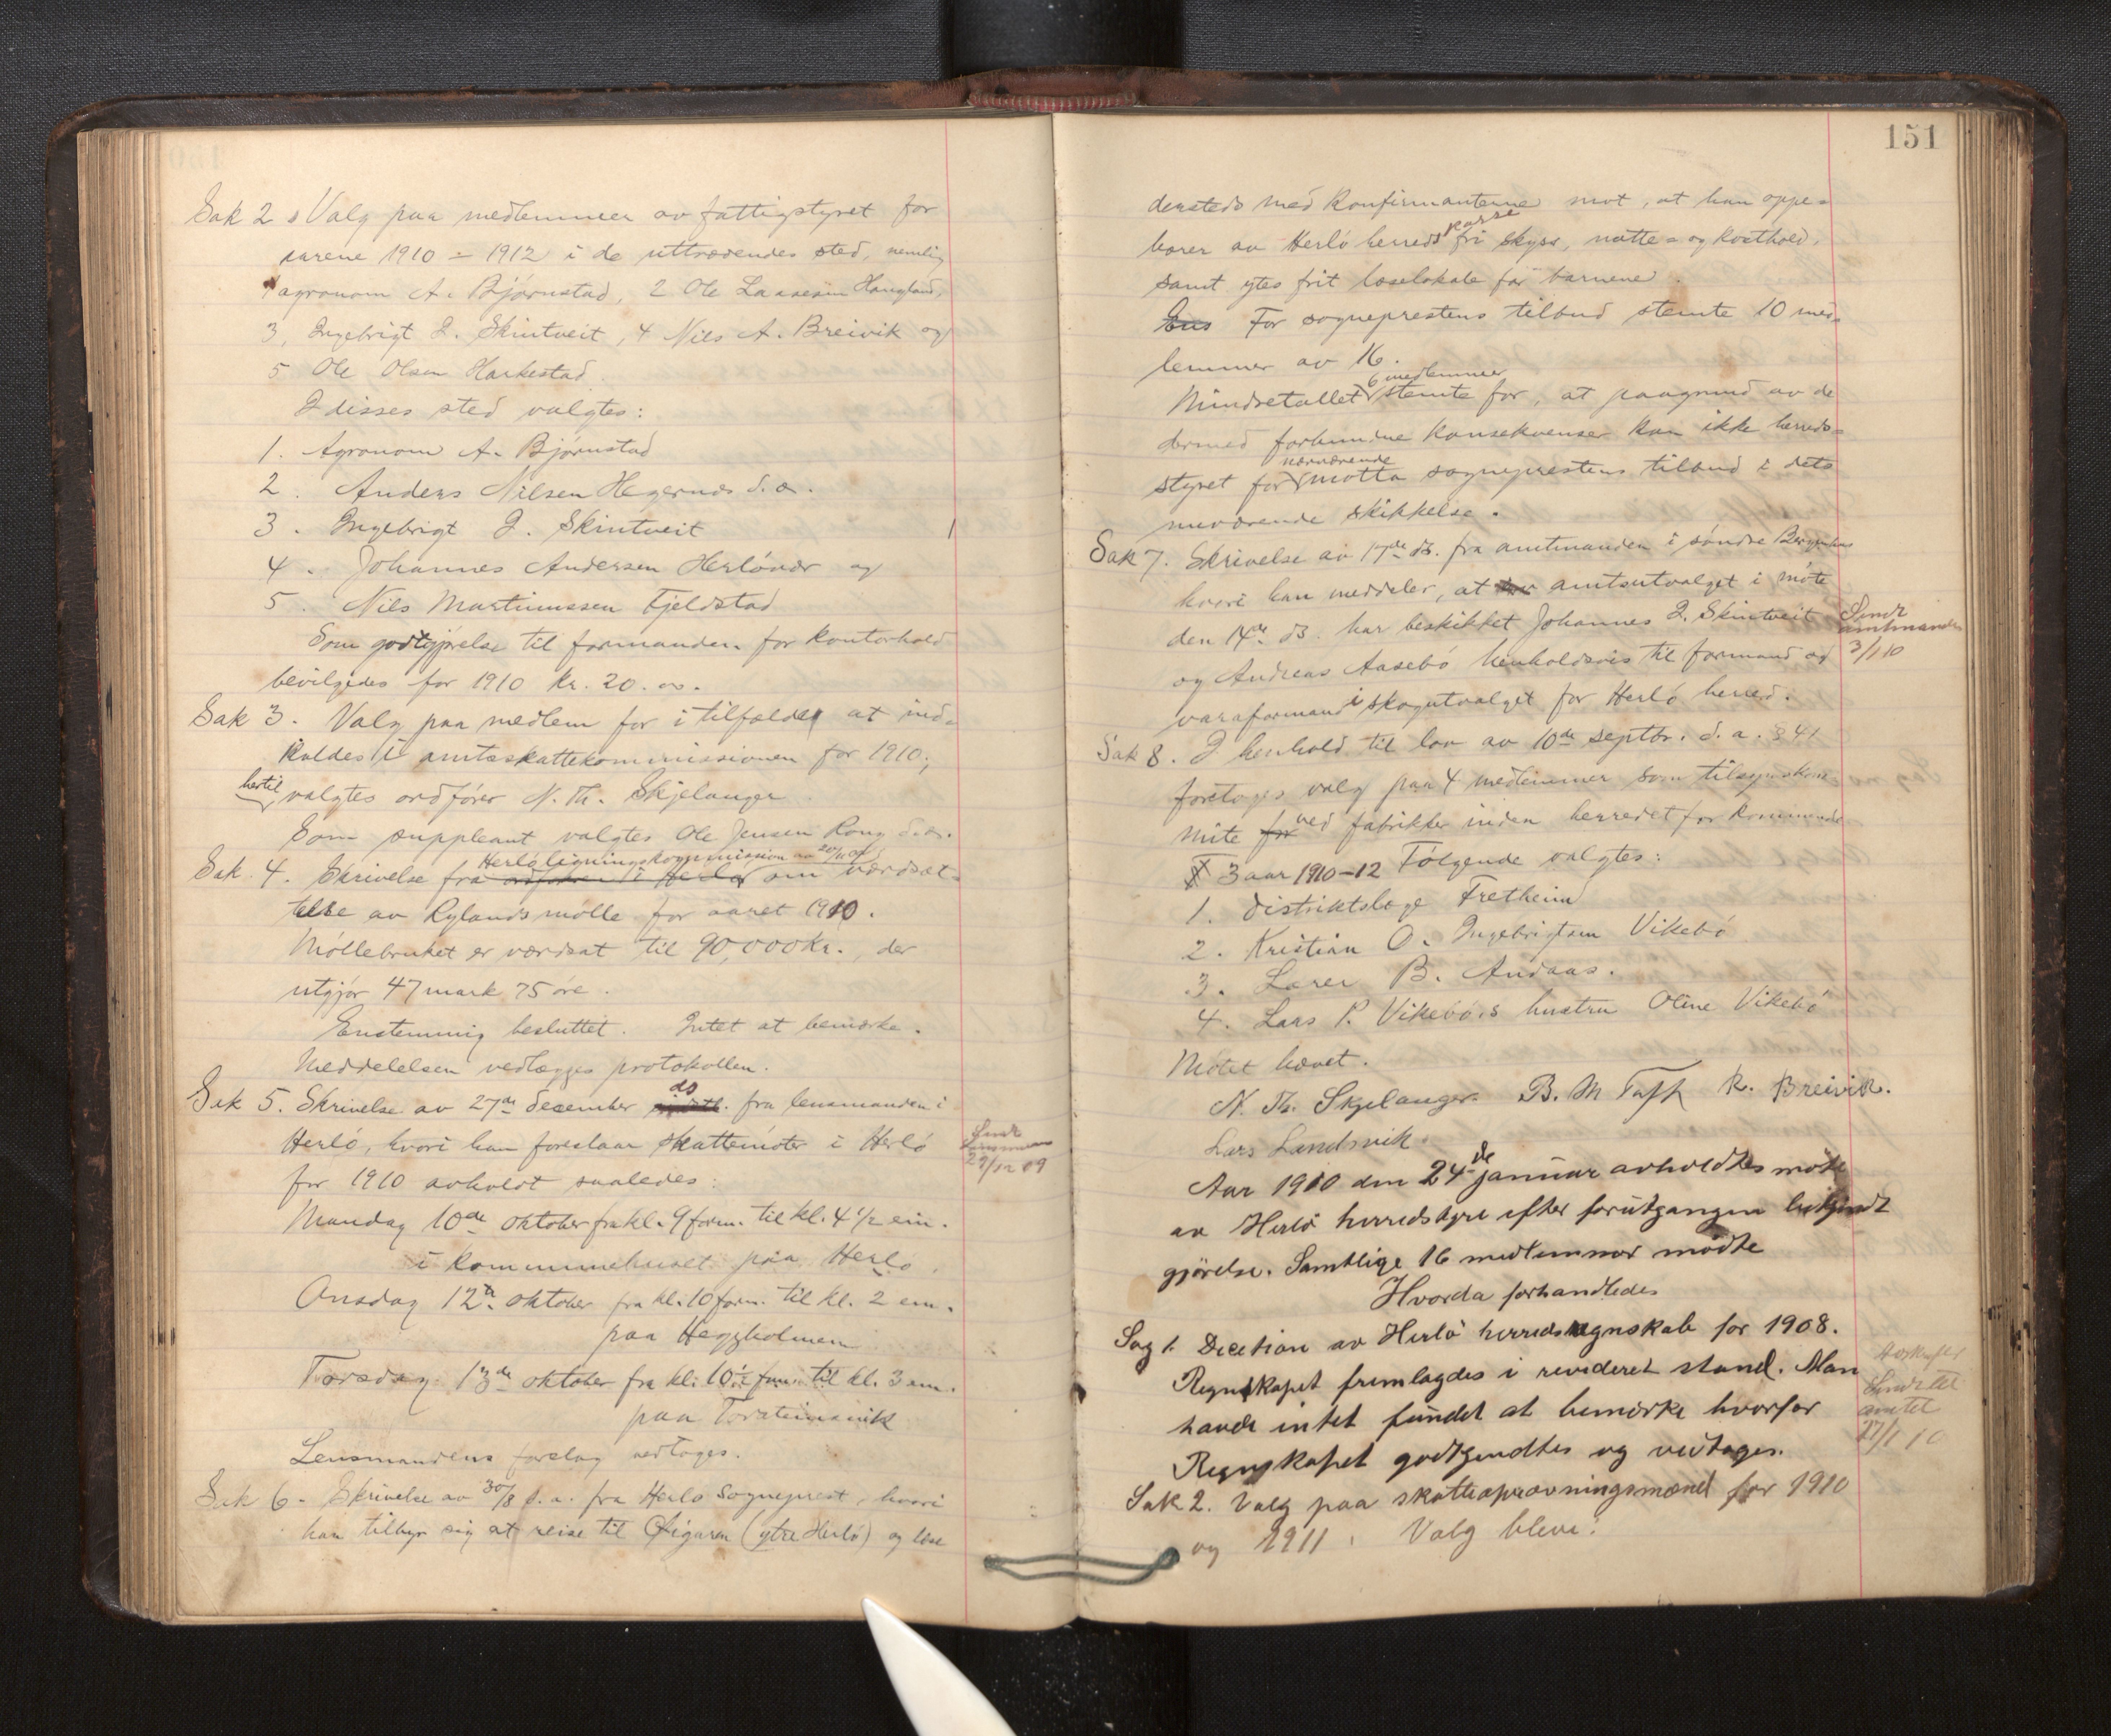 Sak 2. Valg paa medlemmer av fattigstyret for
aarene 1910 - 1912 i de uttrædendes sted, nemlig
1 agronom A. Bjørnstad, 2 Ole Lassesen Haugland,
3, Ingebrigt I. Skintveit, 4 Nils A. Breivik og
5 Ole Olsen Harkestad.
I disses sted valgtes:
1. Agronom A. Bjørnstad
2. Anders Nilsen Hegernæs d.æ.
3. Ingebrigt I. Skintveit
4. Johannes Andersen Herløvær og
5. Nils Martinussen Fjeldstad
Som godtgjørelse til formanden for kontorhold
bevilgedes for 1910 kr. 20.00.
Sak 3. Valg paa medlem for i tilfælde at ind-
kaldes i amtsskattekommissionen for 1910;
hertil valgtes ordfører N. Th. Skjelanger
Som suppleant valgtes Ole Jensen Rong d.æ.
Herlø ligningskommission av 20/11 09
Sak. 4. Skrivelse fra ordføreren i Herlø om værdsæt-
telse av Rylands mølle for aaret 1910.
Møllebruket er værdsat til 90,000 kr., der
utgjør 47 mark 75 øre.
Enstemmig besluttet. Intet at bemerke.
Meddelelsen vedlægges protokollen.
Sak 5. Skrivelse av 27de december ds. fra lensmanden i
Herlø, hvori han foreslaar skattemøter i Herlø
for 1910 avholdt saaledes:
Sendt
lensmanden
29/12 09
Mandag 10de oktober fra kl. 9 form. til kl. 4 1/2 em.
i kommunehuset paa Herlø.
Onsdag 12te oktober fra kl. 10 form. til kl. 2 em.
paa Heggholmen
Torsdag 13de oktober fra kl. 10 1/2 form. til kl. 3 em.
paa Torsteinsvik
Lensmandens forslag vedtoges.
Sak 6. Skrivelse av 30/8 d.a. fra Herlø Sogneprest, hvori
han tilbyr sig at reise til Øigaren (ytre Herlø) og læse
151
densteds med konfirmanterne mot, at han oppe-
bærer av Herlø herreds kasse fri skyss, natte- og kosthold,
samt ytes frit læselokale for barnene.
Ens For sogneprestens tilbud stemte 10 med-
lemmer av 16.
Mindretallet 6 medlemmer stemte for, at paagrund av de
dermed forbundne konsekvenser kan ikke herreds-
styret for nærværende motta sogneprestens tilbud i dets
nuværende skikkelse.
Sak 7. Skrivelse av 17de ds. fra amtmanden i søndre Bergenhus
hvori han meddeler, at amtsutvalget i møte
den 14de ds. har beskikket Johannes I. Skintveit
og Andreas Aasebø henholdsvis til formand og
varaformand i skogutvalget for Herlø herred.
Sendt
amtmanden
3/1 10
Sak 8. I henhold til lov av 10de septbr. d.a. § 41
foretoges valg paa 4 medlemmer som tilsynskom-
mite for ved fabrikker inden herredet for kommende
3 aar 1910-12 Følgende valgtes:
1. Distriktslæge Fretheim
2. Kristian O. Ingebrigtsen Vikebø
3. Lærer B. Andaas.
4. Lars P. Vikebø's hustru Oline Vikebø
Møtet hævet.
N. Th. Skjelanger. B. M Toft R. Breivik.
Lars Landsvik.
Aar 1910 den 24de januar avholdtes møte
av Herlø herredstyre efter forutgangen bekjendt
gjørelse. Samtlige 16 medlemmer mødte
Hvorda forhandledes
Sag 1. Decition av Herlø herredsregnskab for 1908.
Regnskapet fremlagdes i revideret stand. Man
havde intet fundet at bemerke hvorfor
Regnskapet godkjendtes og vedtoges.
Sendt
amtet
27/1 10
Sak 2. Valg paa skatteprøvningsmænd for 1910
og 1911. Valg bleve: